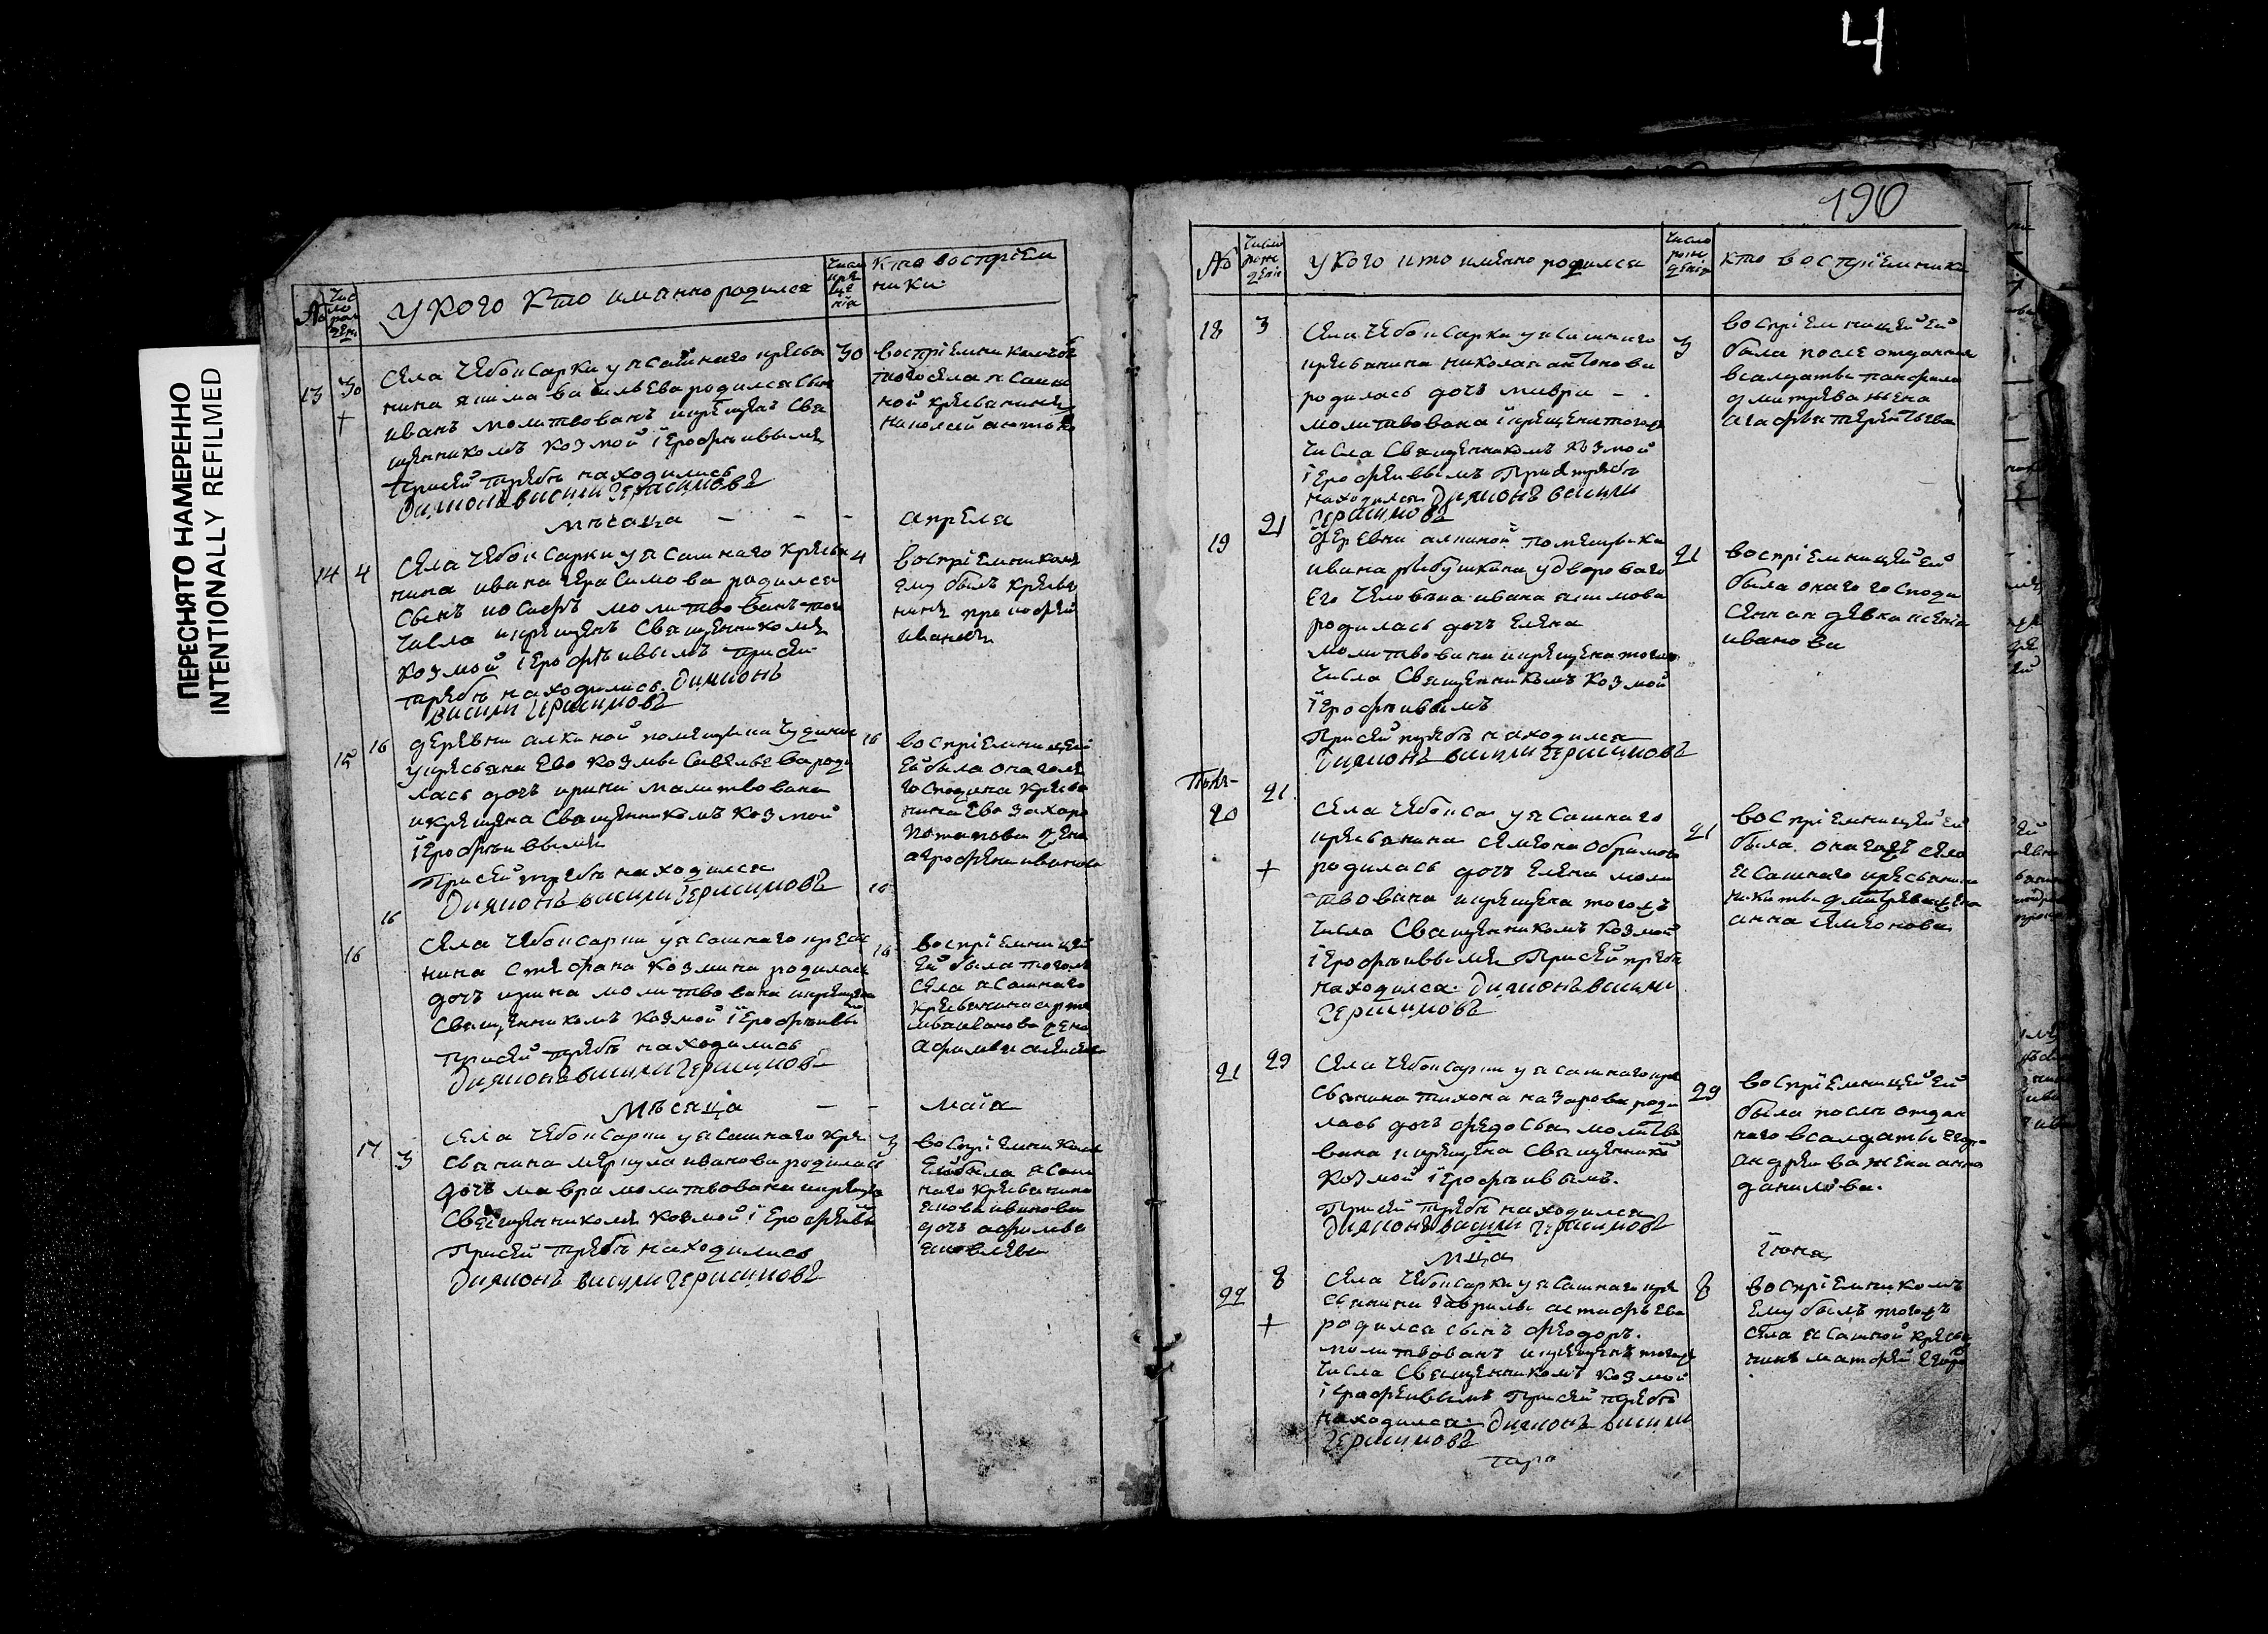 4
190
ПЕРЕСНЯТО НАМЕРЕННО
INTENTIONALLY REFILMED
№
Число рожден.
У кого кто имянно родился
Число крещения
кто восприемники
13 30 30
Села Чебоксарки у ясашнаго кресьянина
родился сынъ
иванъ молитвованъ и крещенъ свя
щенникомъ козмой iерофѣивымъ
при сей требѣ находились
Дияконъ василий Герасимовъ
того села ясаш
ной кресьянинъ
мѣсяца – – – апреля
14 4 4
Села Чебоксарки у ясашнаго кресья
нина ивана герасимова родился
сынъ иосифъ молитвованъ того
числа и крещенъ священникомъ
козмой iерофѣивымъ при сей
требѣ находились Дияконъ
василий Герасимовъ
восприемникомъ
ему былъ кресья
нинъ прокофей
ивановъ
15 16 16
деревни алкиной помещика
у кресьяна ево козмы савельева роди
лась дочь ирина молитвована
и крещена священникомъ козмой
iерофѣивымъ
При сей требѣ находился
Дияконъ василий Герасимовъ
восприемницей
ей была онаго
господина кресья
нина ево захара
потапова жена
агрофена иванова
16
16 16 16
Села Чебоксарки у ясашнаго кресья
нина стефана козмина родилась
дочь ирина молитвована и крещена
священникомъ козмой iерофѣивы
при сей требѣ находились
Дияконъ василий Герасимовъ
восприемницей
ей была тогожъ
села ясашнаго
кресьянина
иванова жена
мѣсяца – – маiя
17 3 3
Села Чебоксарки у ясашнаго кре
сьянина меркула иванова родилась
дочь мавра молитвована и крещена
священникомъ козмой iерофѣивы
При сей требѣ находились
Дияконъ василий Герасимовъ
ей была ясаш
наго кресьянина
якова иванова
дочь
яковлева
№
Число рождения
У кого кто имянно родился
Число рождения
кто восприемники
18 3 3
Села Чебоксарки у ясашнаго
кресьянина николая антонова
родилась дочь мавра – .
молитвована i крещена тогожъ
числа священникомъ козмой
iерофѣивымъ При сей требѣ
находился Дияконъ василий
Герасимовъ
восприемницей ей
была после отданнаго
в салдаты панфила
дмитрева жена
агафья терентьева
19 21 21
деревни алкиной помещика
ивана рыбушкина у двороваго
его человѣка ивана акимова
родилась дочь елена
молитвована и крещена тогожъ
числа священникомъ козмой
iерофѣивымъ
При сей требѣ находился
Дияконъ василий Герасимовъ
восприемницей ей
была онаго госпо
дина девка ксенiя
иванова
20 21 21
Села Чебокса у ясашнаго
кресьянина семиона
родилась дочь елена моли
твована и крещена тогожъ
числа священникомъ козмой
iерофѣивымъ При сей требѣ
находился Дияконъ василий
Герасимовъ
восприемницей ей
была онагожъ села
ясашнаго кресьянина
никиты дмитрева жена
анна симионова
21 29 29
Села Чебоксарки у ясашнаго кре
сьянина тихона назарова роди
лась дочь федосья молитво
вана и крещена священнико
козмой iерофѣивымъ.
при сей требѣ находился
Дияконъ василий Герасимовъ
восприемницей ей
была послѣ отдан
наго в салдаты
андреива жена анна
данилова.
мца iюня
22 8 8
Села Чебоксарки у ясашнаго кре
сьянина гаврилы астафьева
родился сынъ феодоръ.
молитвованъ и крещенъ тогожъ
числа священникомъ козмой
iерофѣивымъ При сей требѣ
находился Дияконъ василий
Герасимовъ
восприемникомъ
ему былъ тогожъ
села ясашной кресья
нинъ матфей